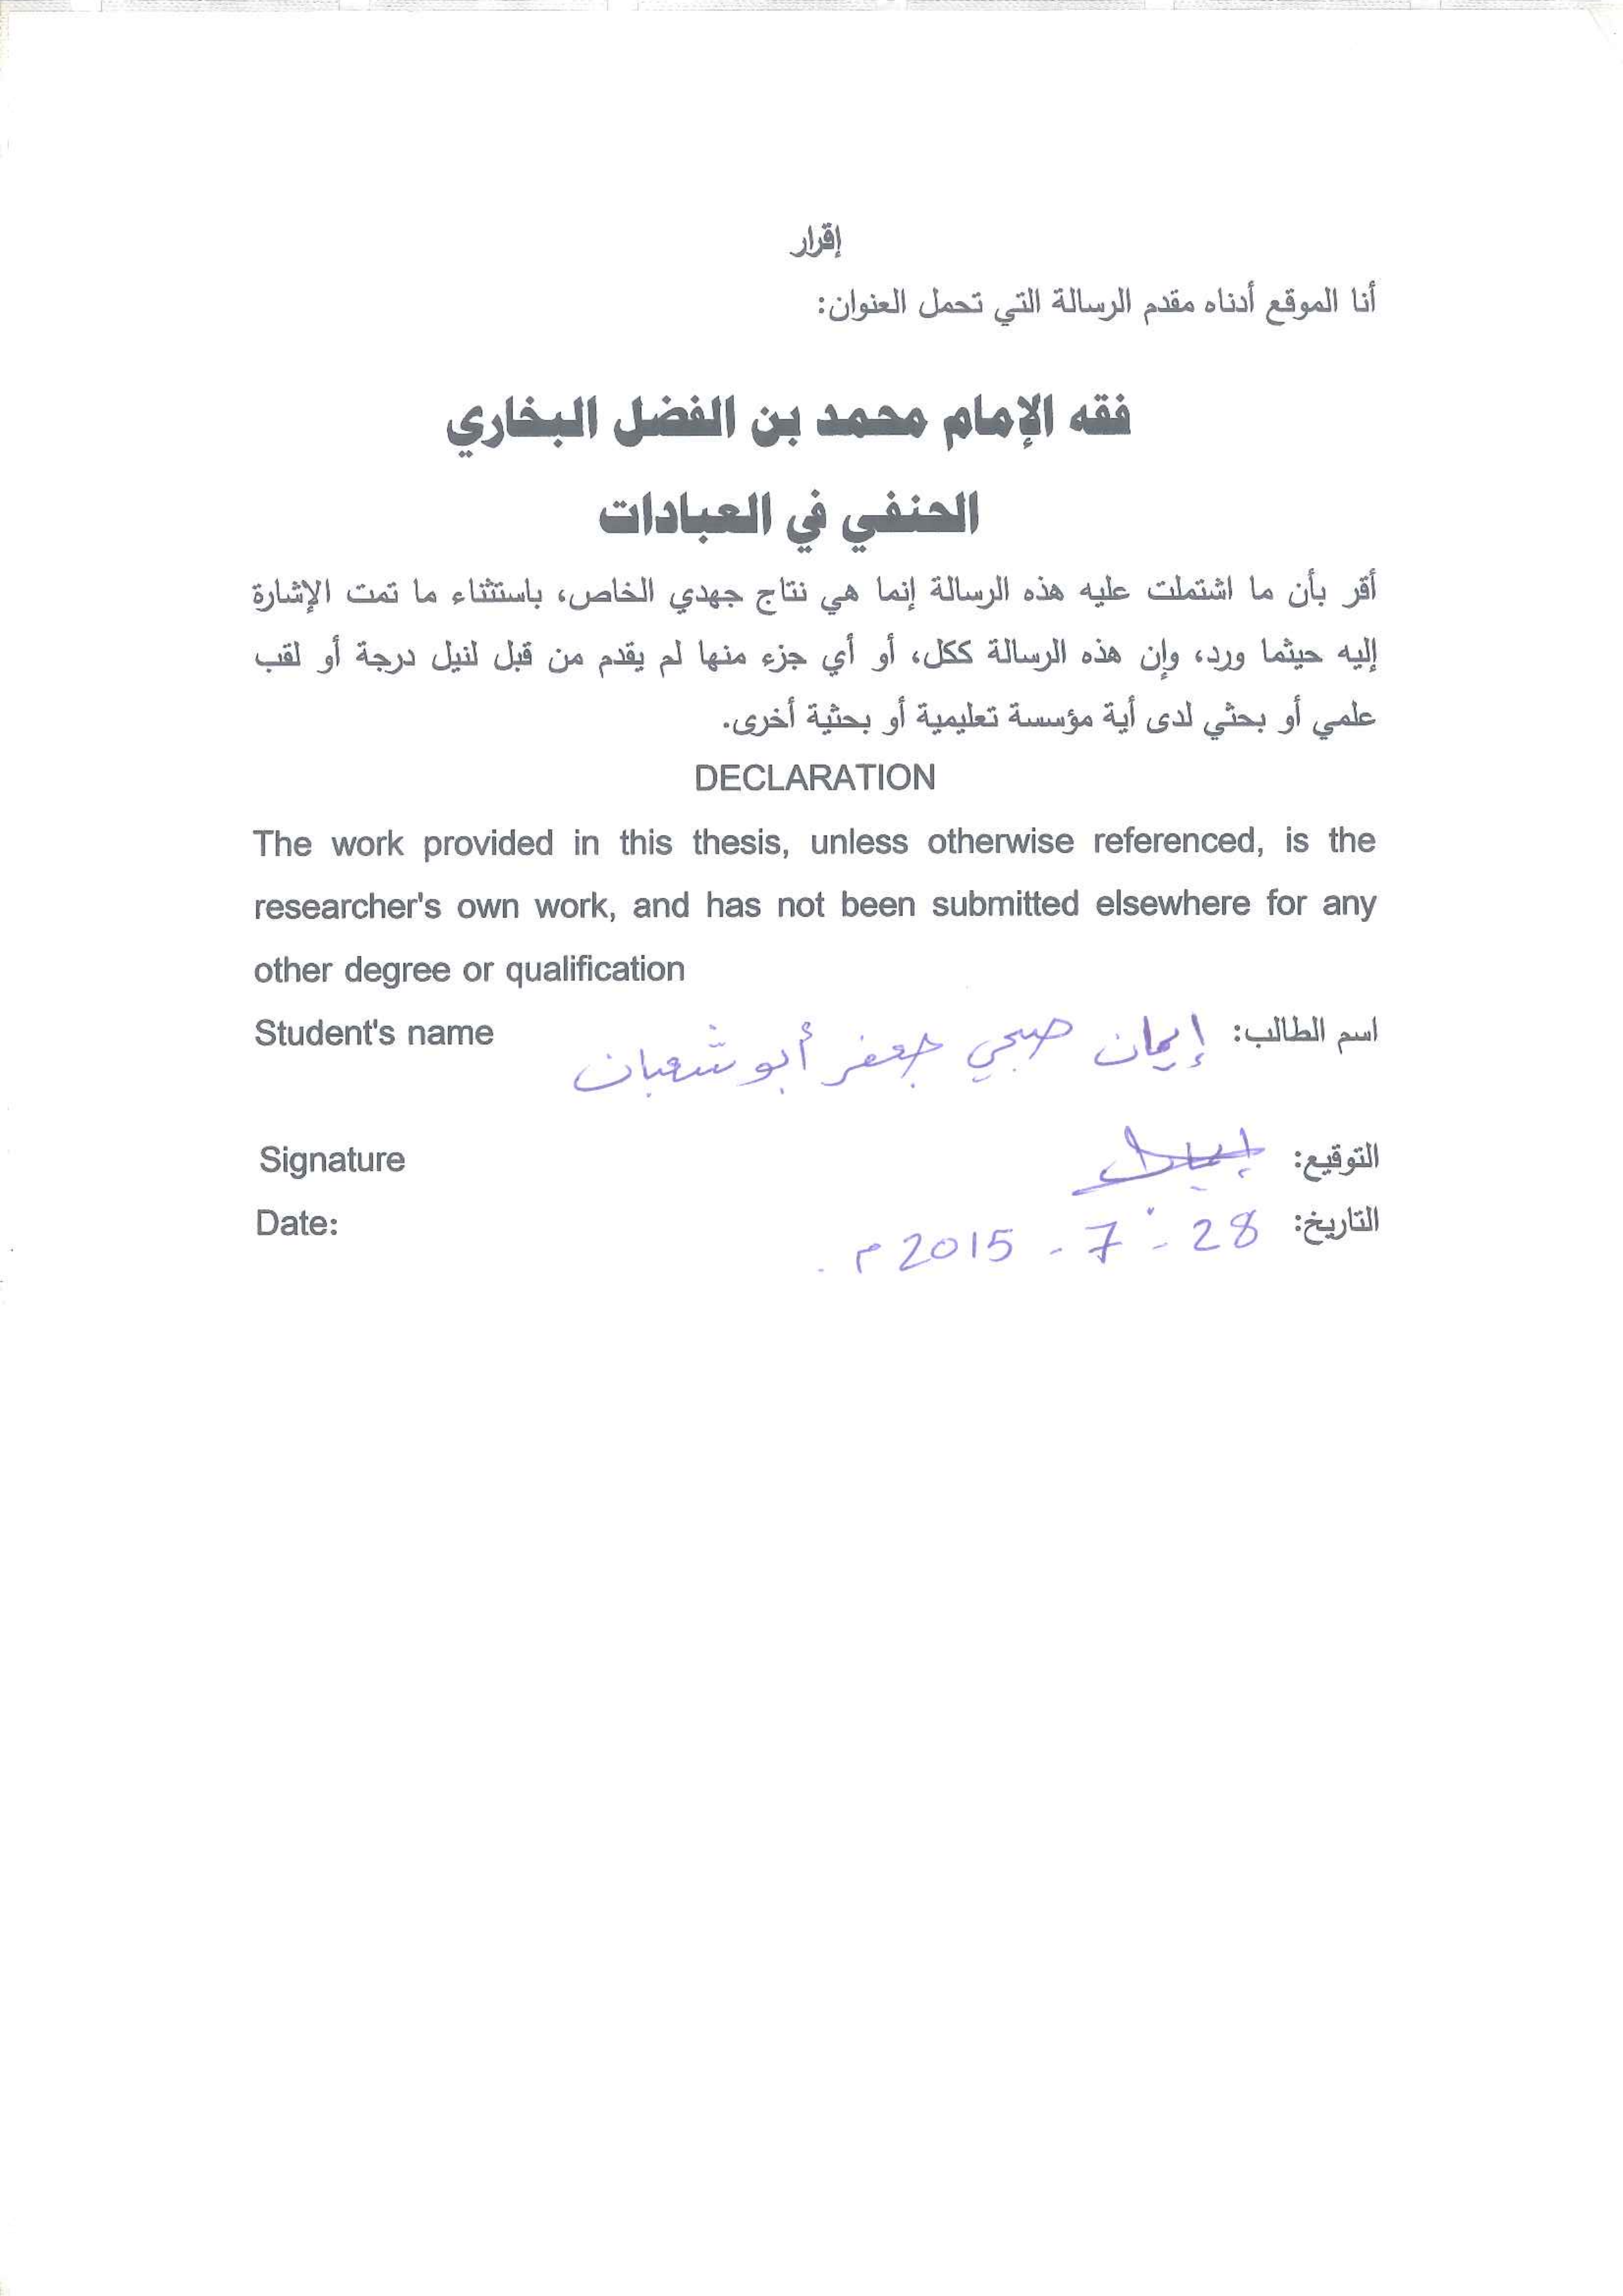 إقرار
أنا الموقع أدناه مقدم الرسالة التي تحمل العنوان:
فقه الإمام محمد بن الفضل البخاري
الحنفي في العبادات
أقر بأن ما اشتملت عليه هذه الرسالة إنما هي نتاج جهدي الخاص، باستثناء ما تمت الإشارة
إليه حيثما ورد، وإن هذه الرسالة ككل، أو أي جزء منها لم يقدم من قبل لنيل درجة أو لقب
علمي أو بحثي لدى أية مؤسسة تعليمية أو بحثية أخرى.
DECLARATION
The work provided in this thesis, unless otherwise referenced, is the
researcher's own work, and has not been submitted elsewhere for any
other degree or qualification
Student's name اسم الطالب: إيمان صبحي جعفر أبو شعبان
Signature التوقيع: إيمان
Date: التاريخ: 28 - 7 - 2015 م.